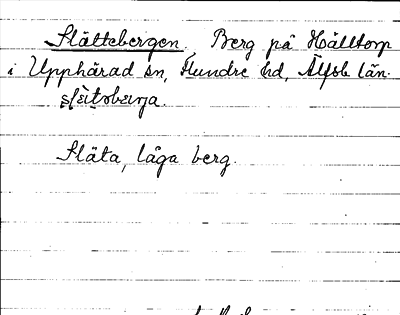 Slättebergen, Berg på Hålltorp
i Upphärad sn, Flundre hd, Älfsb. län.
Släta, låga berg.